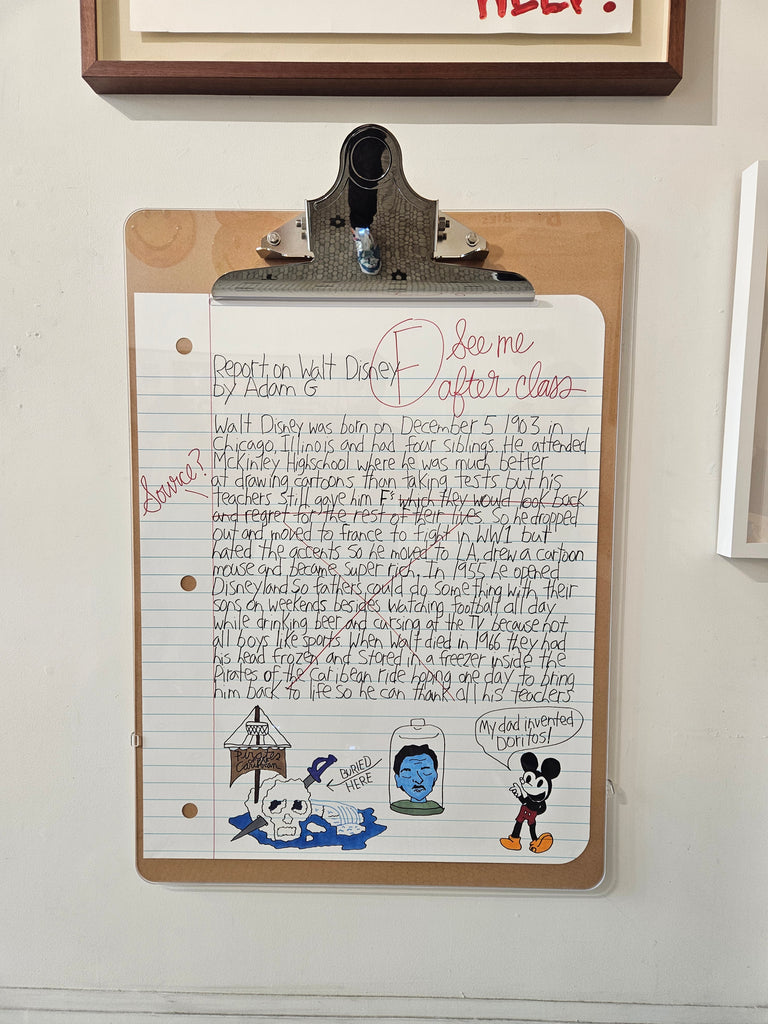 HELP!
F See me
after class
Report on Walt Disney
by Adam G
Walt Disney was born on December 5 1903 in
Chicago, Illinois and had four siblings. He attended
McKinley Highschool where he was much better
at drawing cartoons than taking tests but his
Source?
teachers still gave him F's which they would look back
and regret for the rest of their lives so he dropped
out and moved to france to fight in WW1 but
hated the accents so he moved to LA, drew a cartoon
mouse and became super rich. In 1955 he opened
Disneyland so fathers could do something with their
sons on weekends besides watching football all day
while drinking beer and cursing at the TV because not
all boys like sports. When Walt died in 1966 they had
his head frozen and stored in a freezer inside the
Pirates of the Caribean ride hoping one day to bring
him back to life so he can thank all his teachers
My dad invented
Doritos!
Pirates
Caribbean
BURIED
HERE